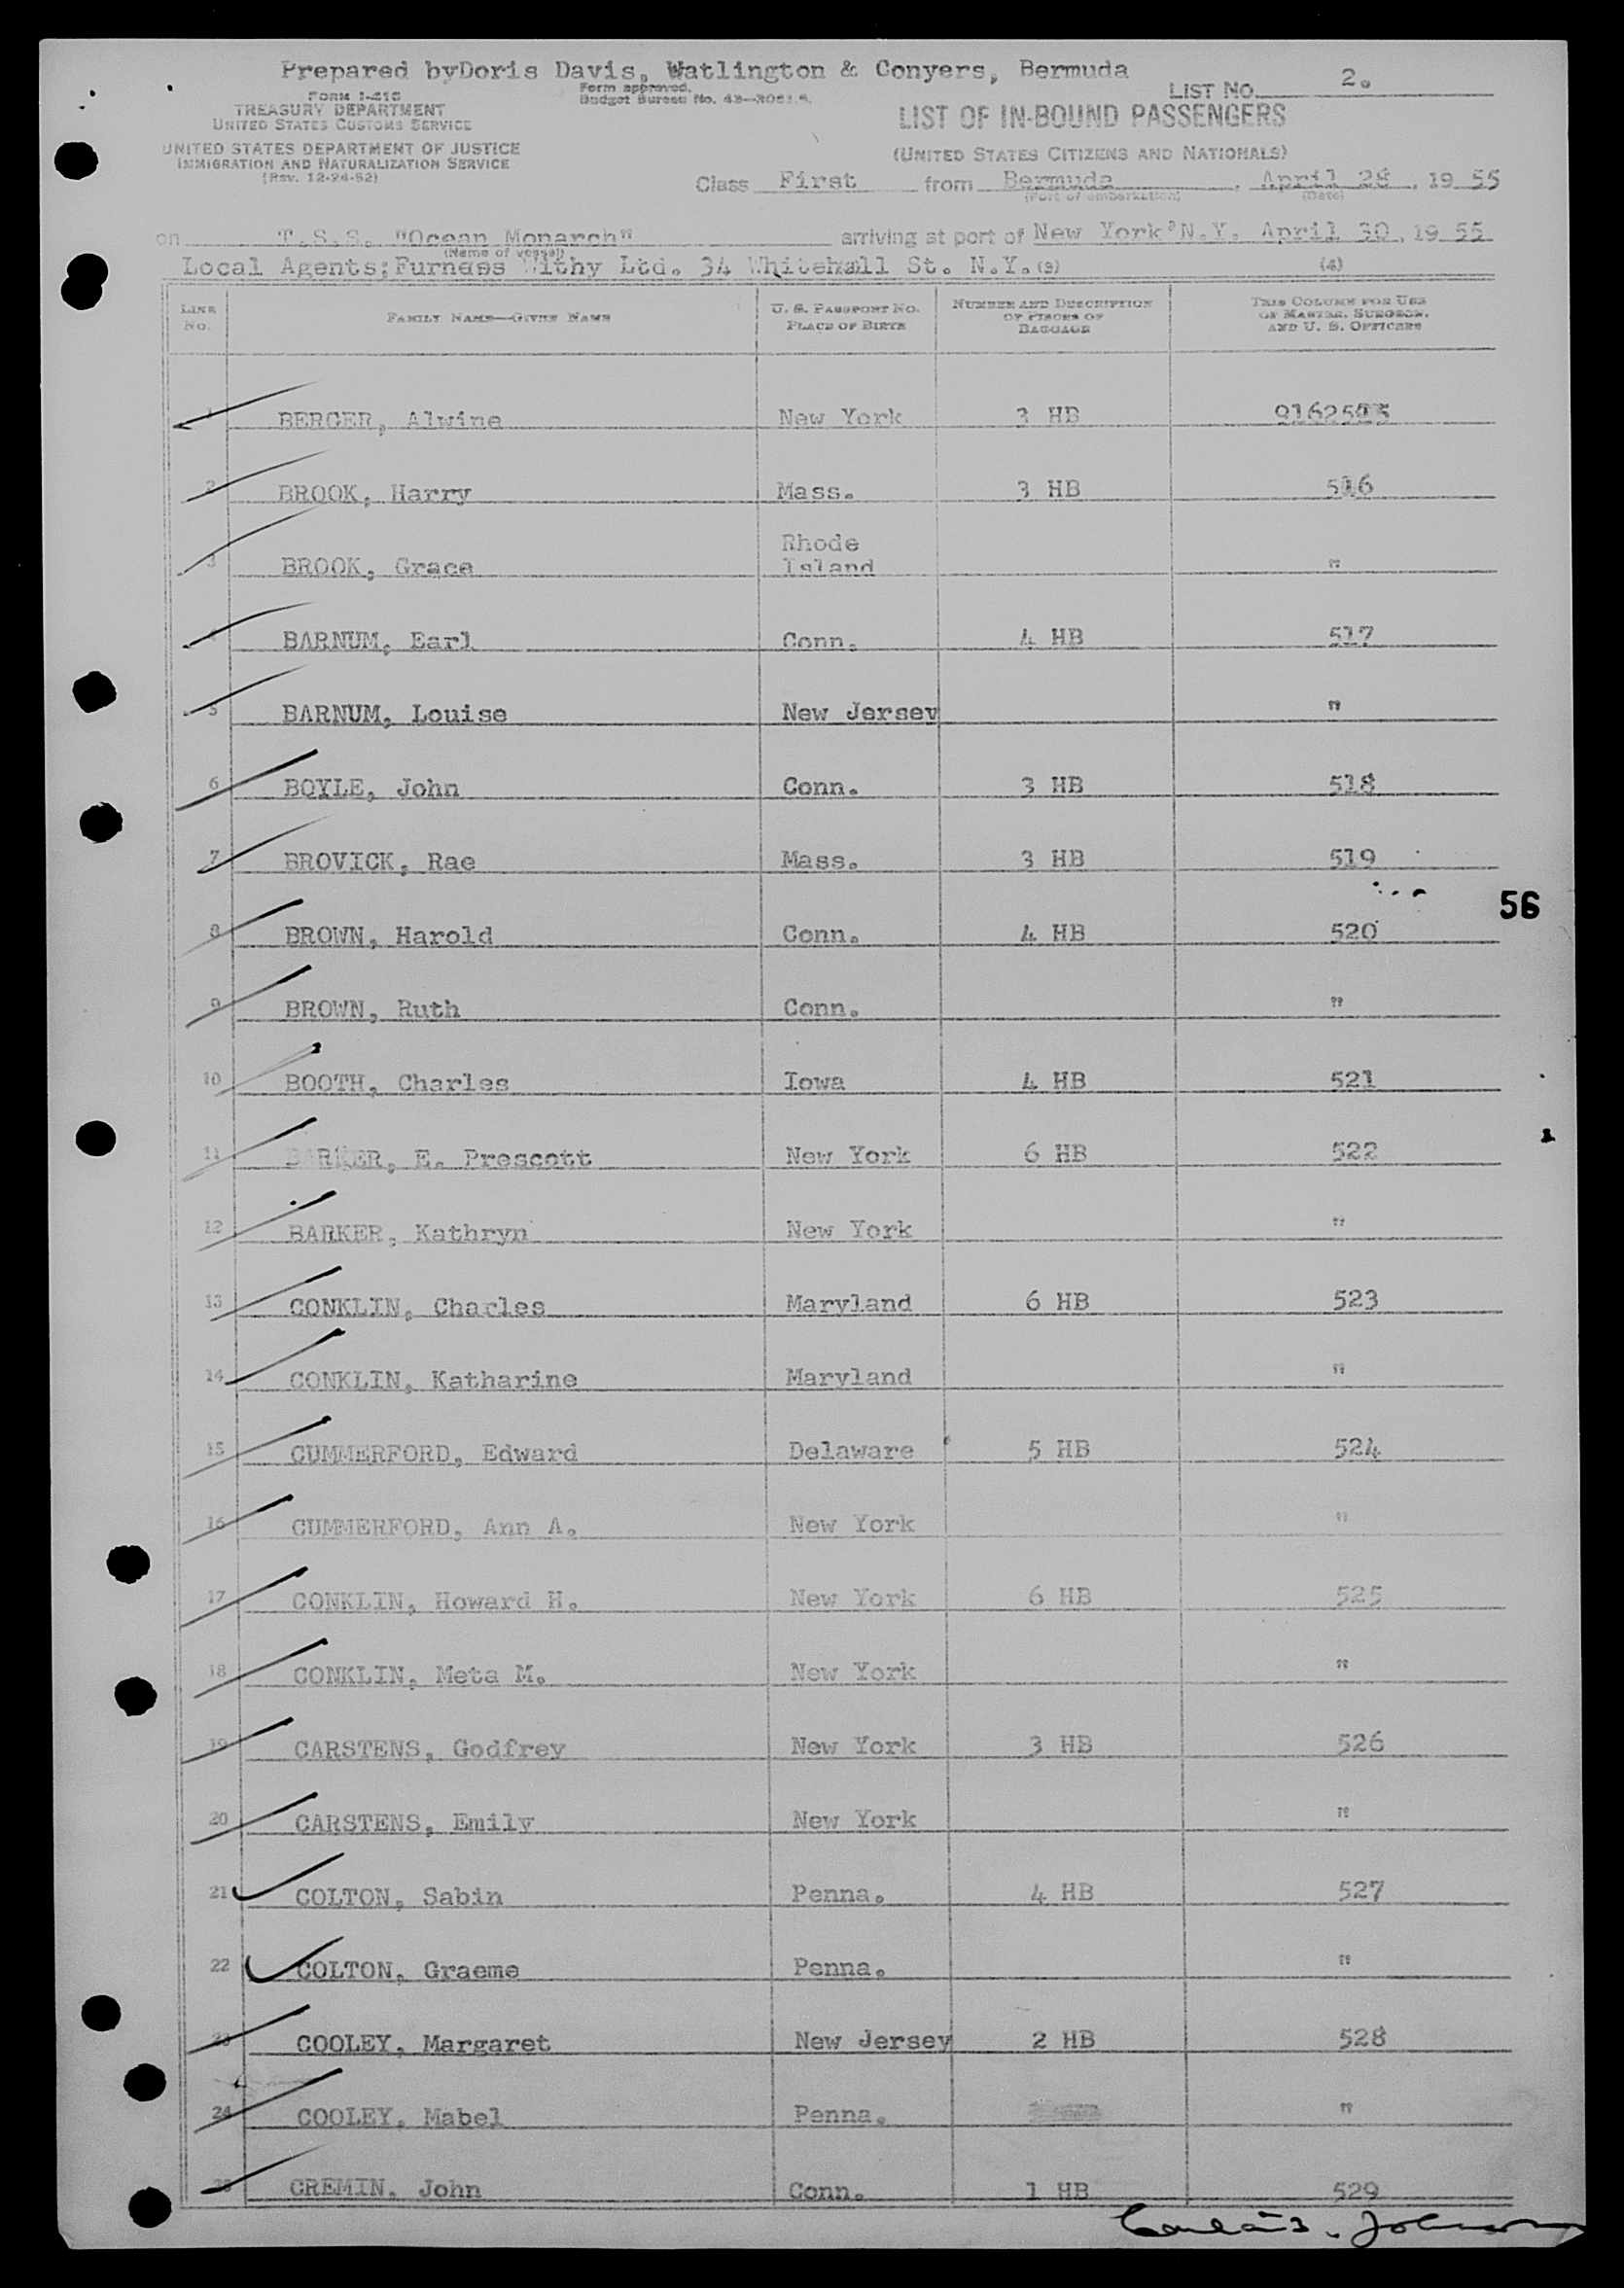 Prepared byDoris Davis, Watlington & Conyers, Bermuda
LIST No. 2.
FORM I-415
TREASURY DEPARTMENT
UNITED STATES CUSTOMS SERVICE
Form approved.
Budget Bureau No.
LIST OF IN-BOUND PASSENGERS
UNITED STATES DEPARTMENT OF JUSTICE
IMMIGRATION AND NATURALIZATION SERVICE
(Rev. 12-24-52)
(UNITED STATES CITIZENS AND NATIONALS)
Class First from Bermuda, April 28, 19 55
(Port of embarkation) (Date)
on T.S.S. "Ocean Monarch" arriving at port of New York, N.Y. April 30, 19 55
(Name of vessel)
Local Agents; Furness Withy Ltd. 34 Whitehall St. N.Y. (3) (4)
LINE No. FAMILY NAME—GIVEN NAME U. S. PASSPORT No. PLACE OF BIRTH NUMBER AND DESCRIPTION OF PIECES OF BAGGAGE THIS COLUMN FOR USE OF MASTER, SURGEON, AND U. S. OFFICERS
1 BERGER, Alwine New York 3 HB
2 BROOK, Harry Mass. 3 HB 516
3 BROOK, Grace Rhode Island "
4 BARNUM, Earl Conn. 4 HB 517
5 BARNUM, Louise New Jersey "
6 BOYLE, John Conn. 3 HB 518
7 BROVICK, Rae Mass. 3 HB 519
56
8 BROWN, Harold Conn. 4 HB 520
9 BROWN, Ruth Conn. "
10 BOOTH, Charles Iowa 4 HB 521
11 BARKER, E. Prescott New York 6 HB 522
12 BARKER, Kathryn New York "
13 CONKLIN, Charles Maryland 6 HB 523
14 CONKLIN, Katharine Maryland "
15 CUMMERFORD, Edward Delaware 5 HB 524
16 CUMMERFORD, Ann A. New York "
17 CONKLIN, Howard H. New York 6 HB 525
18 CONKLIN, Meta M. New York "
19 CARSTENS, Godfrey New York 3 HB 526
20 CARSTENS, Emily New York "
21 COLTON, Sabin Penna. 4 HB 527
22 COLTON, Graeme Penna. "
23 COOLEY, Margaret New Jersey 2 HB 528
24 COOLEY, Mabel Penna. "
25 CREMIN, John Conn. 1 HB 529